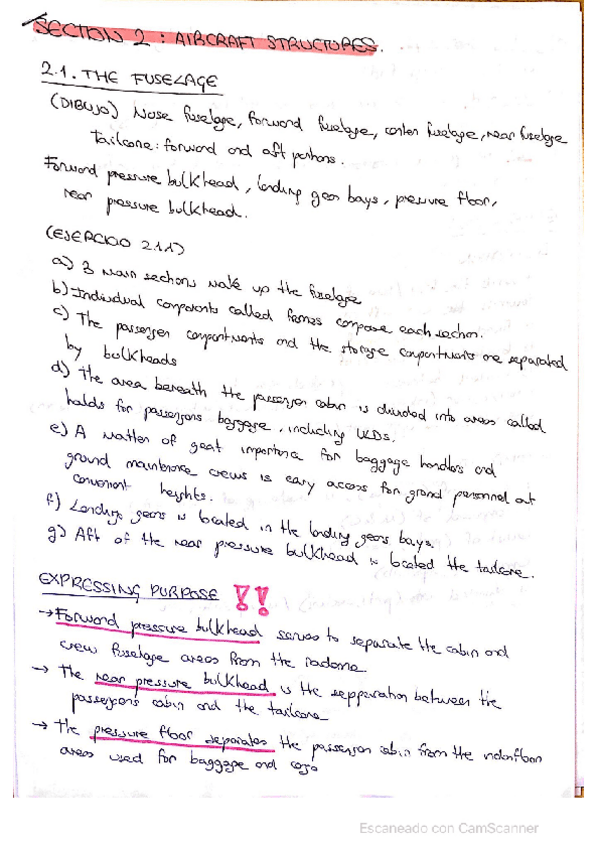 SECTION 2 : AIRCRAFT STRUCTURES.
2.1. THE FUSELAGE
(DIBUJO) Nose fuselage, forward fuselage, center fuselage, rear fuselage
Tailcone: forward and aft portions.
Forward pressure bulkhead, landing gear bays, pressure floor,
rear pressure bulkhead.
(EJERCICIO 2.1.1)
a) 3 main sections make up the fuselage
b) Individual components called frames compose each section.
c) The passenger compartments and the storage compartments are separated
by bulkheads
d) The area beneath the passenger cabin is divided into areas called
holds for passengers baggage, including ULDs.
e) A matter of great importance for baggage handlers and
ground maintenance crews is easy access for ground personnel at
convenient heights.
f) Landing gears is located in the landing gears bays.
g) Aft of the rear pressure bulkhead is located the tailcone.
EXPRESSING PURPOSE !!
→ Forward pressure bulkhead serves to separate the cabin and
crew fuselage areas from the radome
→ The rear pressure bulkhead is the sepparation between the
passengers cabin and the tailcone
→ The pressure floor separates the passenger cabin from the underfloor
areas used for baggage and cargo
Escaneado con CamScanner